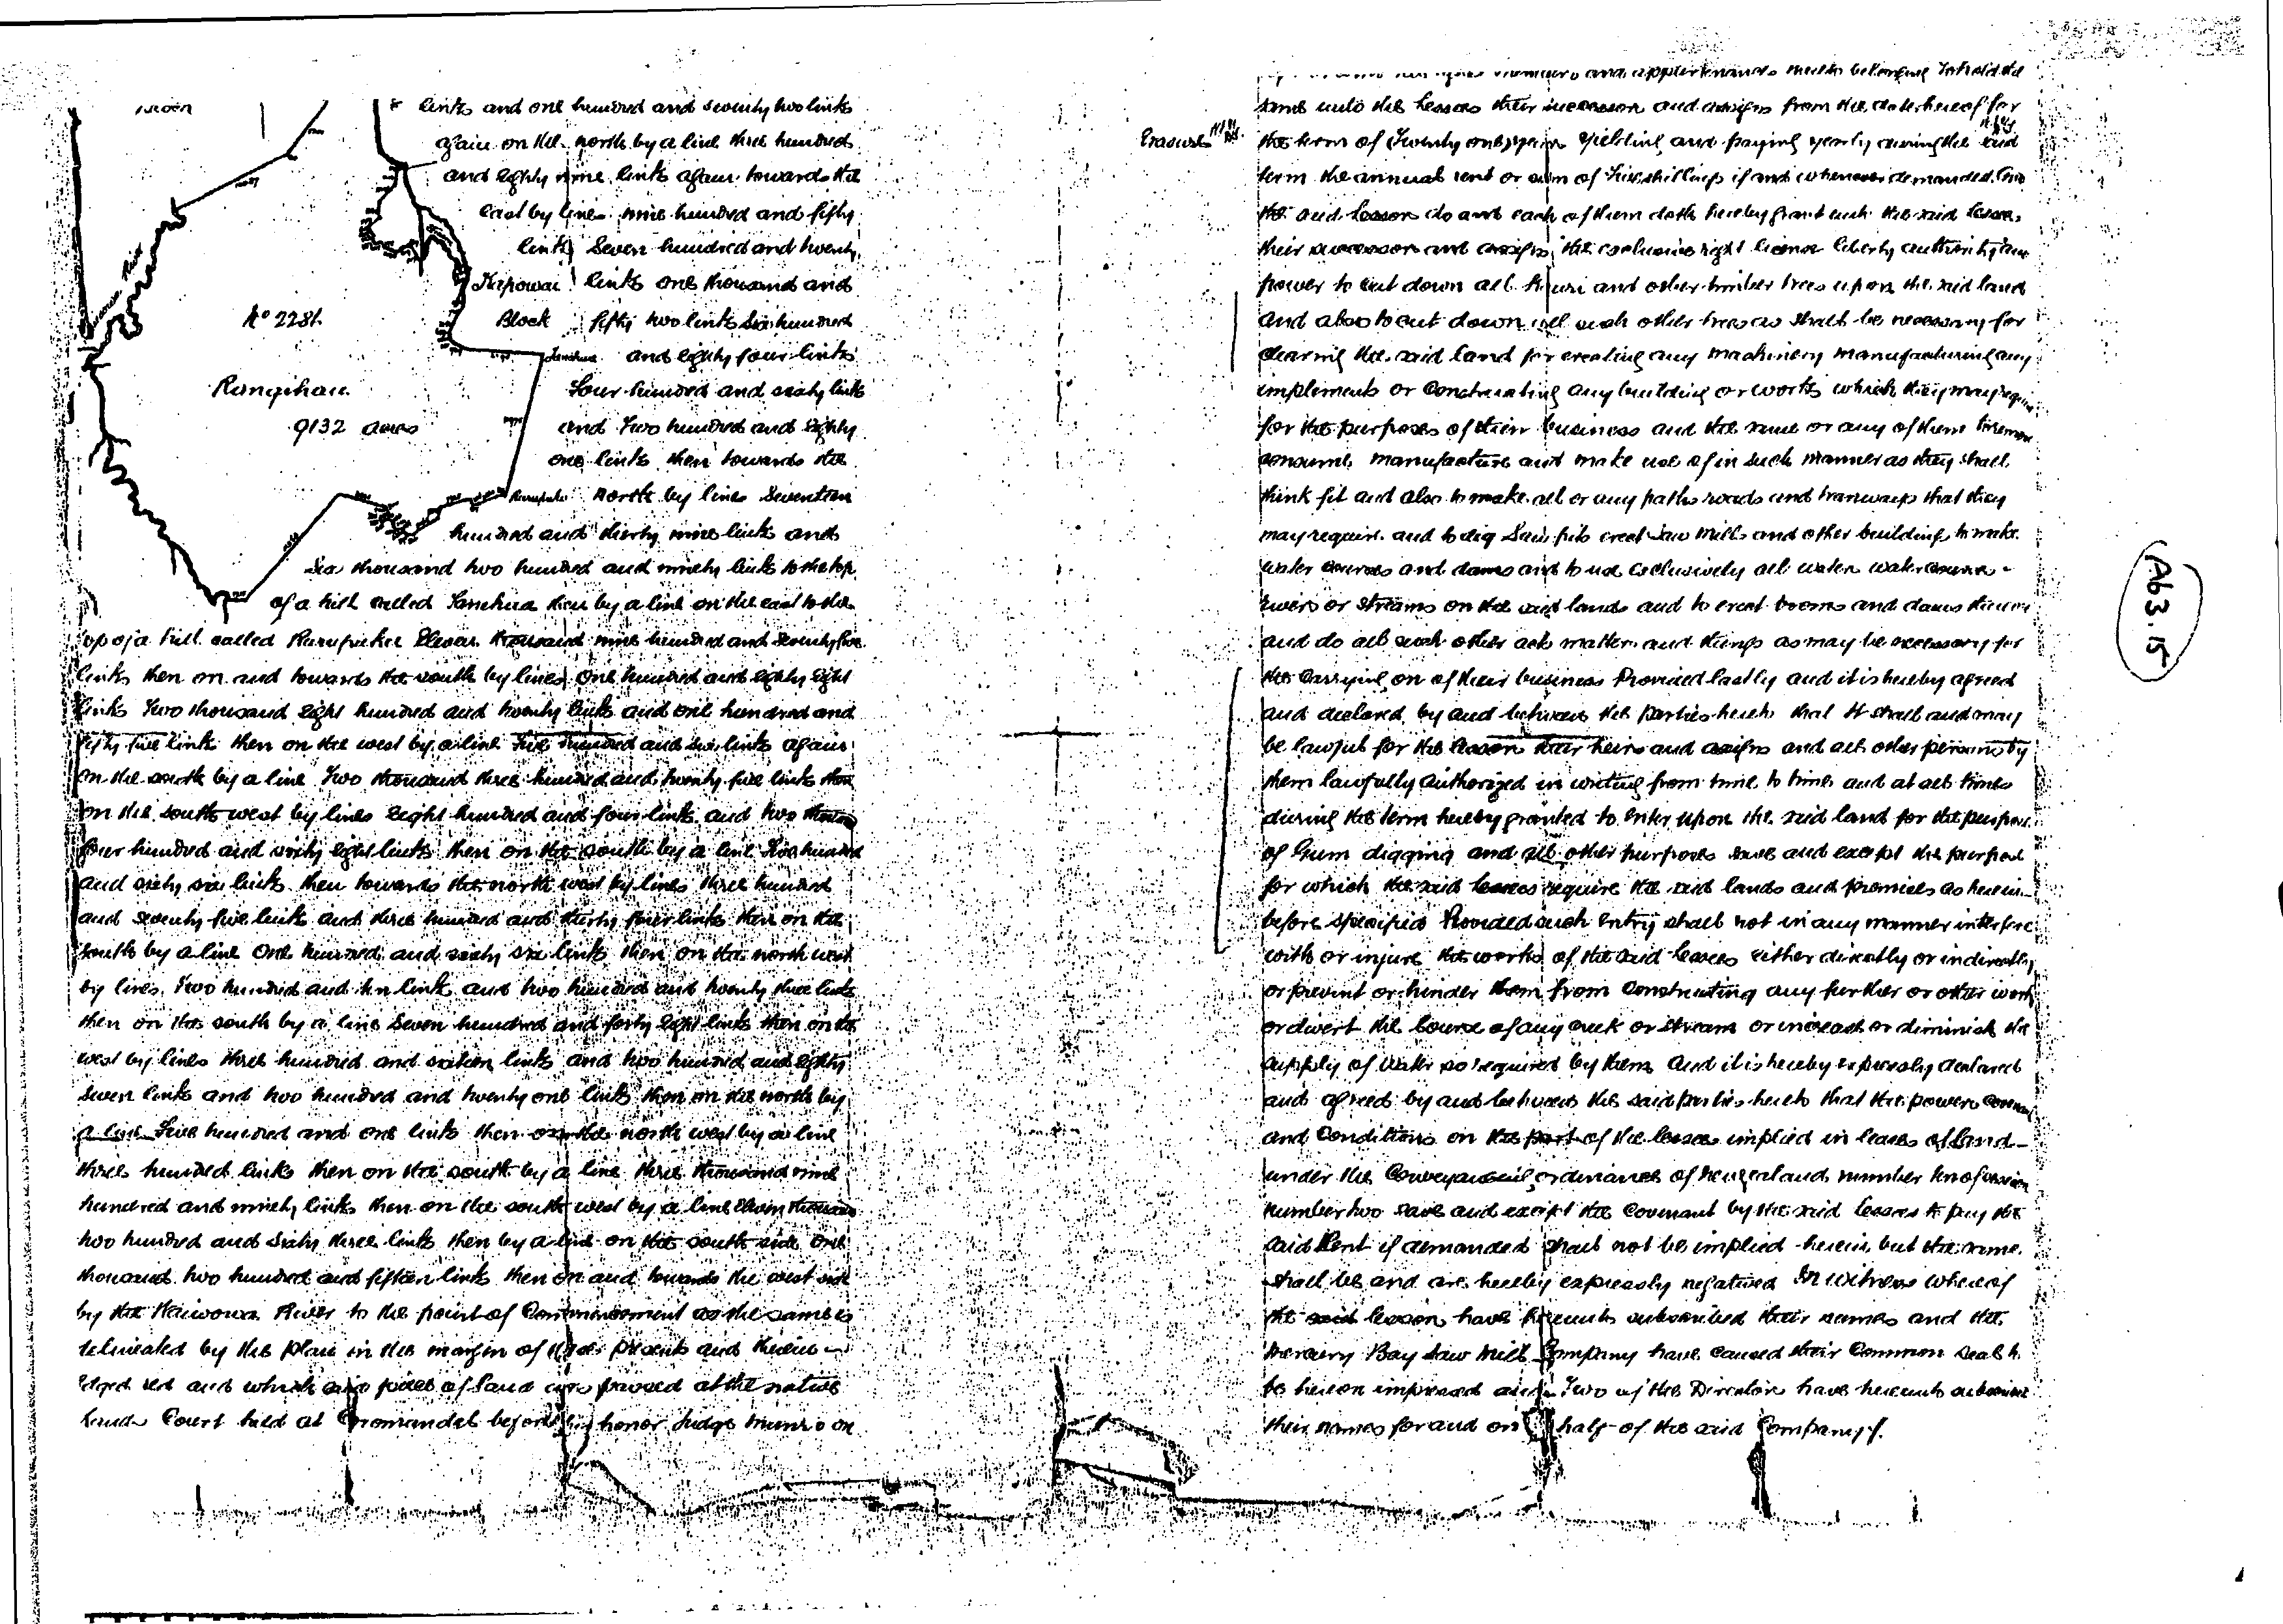 links and one hundred and seventy two links
again on the north by a line three hundred
and eighty nine links again towards the
East by lines nine hundred and fifty
links Seven hundred and twenty
links one thousand and
fifty two links Six hundred
and eighty four links
Four hundred and sixty links
and Two hundred and eighty
one links then towards the
north by lines Seventeen
hundred and thirty nine links and
Six thousand two hundred and ninety links to the top
of a hill called then by a line on the east to the
top of a hill called Eleven thousand nine hundred and seventy five
links then on and towards the south by lines One hundred and eighty eight
links Two thousand eight hundred and twenty links and one hundred and
fifty five links then on the west by a line Five hundred and six links again
on the south by a line Two thousand three hundred and twenty five links then
on the south west by lines eight hundred and four links and two thousand
four hundred and sixty eight links then on the south by a line hundred
and sixty six links then towards the north west by lines three hundred
and seventy five links and three hundred and thirty four links then on the
south by a line One hundred and sixty six links then on the north west
by lines Two hundred and ten links and two hundred and twenty three links
then on the south by a line Seven hundred and forty eight links then on the
west by lines three hundred and sixteen links and two hundred and eighty
seven links and two hundred and twenty one links then on the north by
a line Five hundred and one links then on the north west by a line
three hundred links then on the south by a line three thousand nine
hundred and ninety links then on the south west by a line Eleven thousand
two hundred and sixty three links then by a line on the south side One
thousand two hundred and fifteen links then on and towards the west side
by the River to the point of Commencement as the same is
delineated by the plan in the margin of these presents and therein
edged red and which said pieces of land were passed at the native
Lands Court held at Coromandel before his honor Judge Munro on
No 2281
Rangihau
9132 acres
Block
members and appurtenances thereto belonging To hold the
same unto the Lessees their successors and assigns from the date hereof for
Erasure
the term of (Twenty one) years yielding and paying yearly during the said
term the annual rent or sum of Five shillings if and whenever demanded And
the said Lessors do and each of them doth hereby grant unto the said Lessees
their successors and assigns the exclusive right licence liberty authority and
power to cut down all Kauri and other timber trees upon the said land
and also to cut down all such other trees as shall be necessary for
clearing the said land for erecting any machinery manufacturing any
implements or Constructing any building or works which they may require
for the purposes of their business and the same or any of them to remove
consume manufacture and make use of in such manner as they shall
think fit and also to make all or any paths roads and tramways that they
may require and to dig Saw pits erect Saw Mills and other building to make
water courses and dams and to use exclusively all water watercourses
rivers or streams on the said lands and to erect booms and dams thereon
and do all such other acts matters and things as may be necessary for
the carrying on of their business Provided lastly and it is hereby agreed
and declared by and between the parties hereto that It shall and may
be lawful for the lessors their heirs and assigns and all other persons by
them lawfully authorized in writing from time to time and at all times
during the term hereby granted to enter upon the said land for the purpose
of Gum digging and all other purposes save and except the purpose
for which the said lessees require the said lands and premises as herein
before specified Provided such entry shall not in any manner interfere
with or injure the works of the said lessees either directly or indirectly
or prevent or hinder them from Constructing any further or other work
or divert the Course of any creek or stream or increase or diminish the
supply of water so required by them And it is hereby expressly declared
and agreed by and between the said parties hereto that the powers
and Conditions on the part of the lessees implied in leases of Land
under the Conveyancing ordinance of New Zealand number ten of session
number two save and except the Covenant by the said lessees to pay the
said Rent if demanded shall not be implied herein but the same
shall be and are hereby expressly negatived In witness whereof
the said lessors have hereunto subscribed their names and the
Mercury Bay Saw Mill Company have caused their Common Seal to
be hereon impressed and Two of the Directors have hereunto subscribed
their names for and on behalf of the said Company /.
Ab3.15